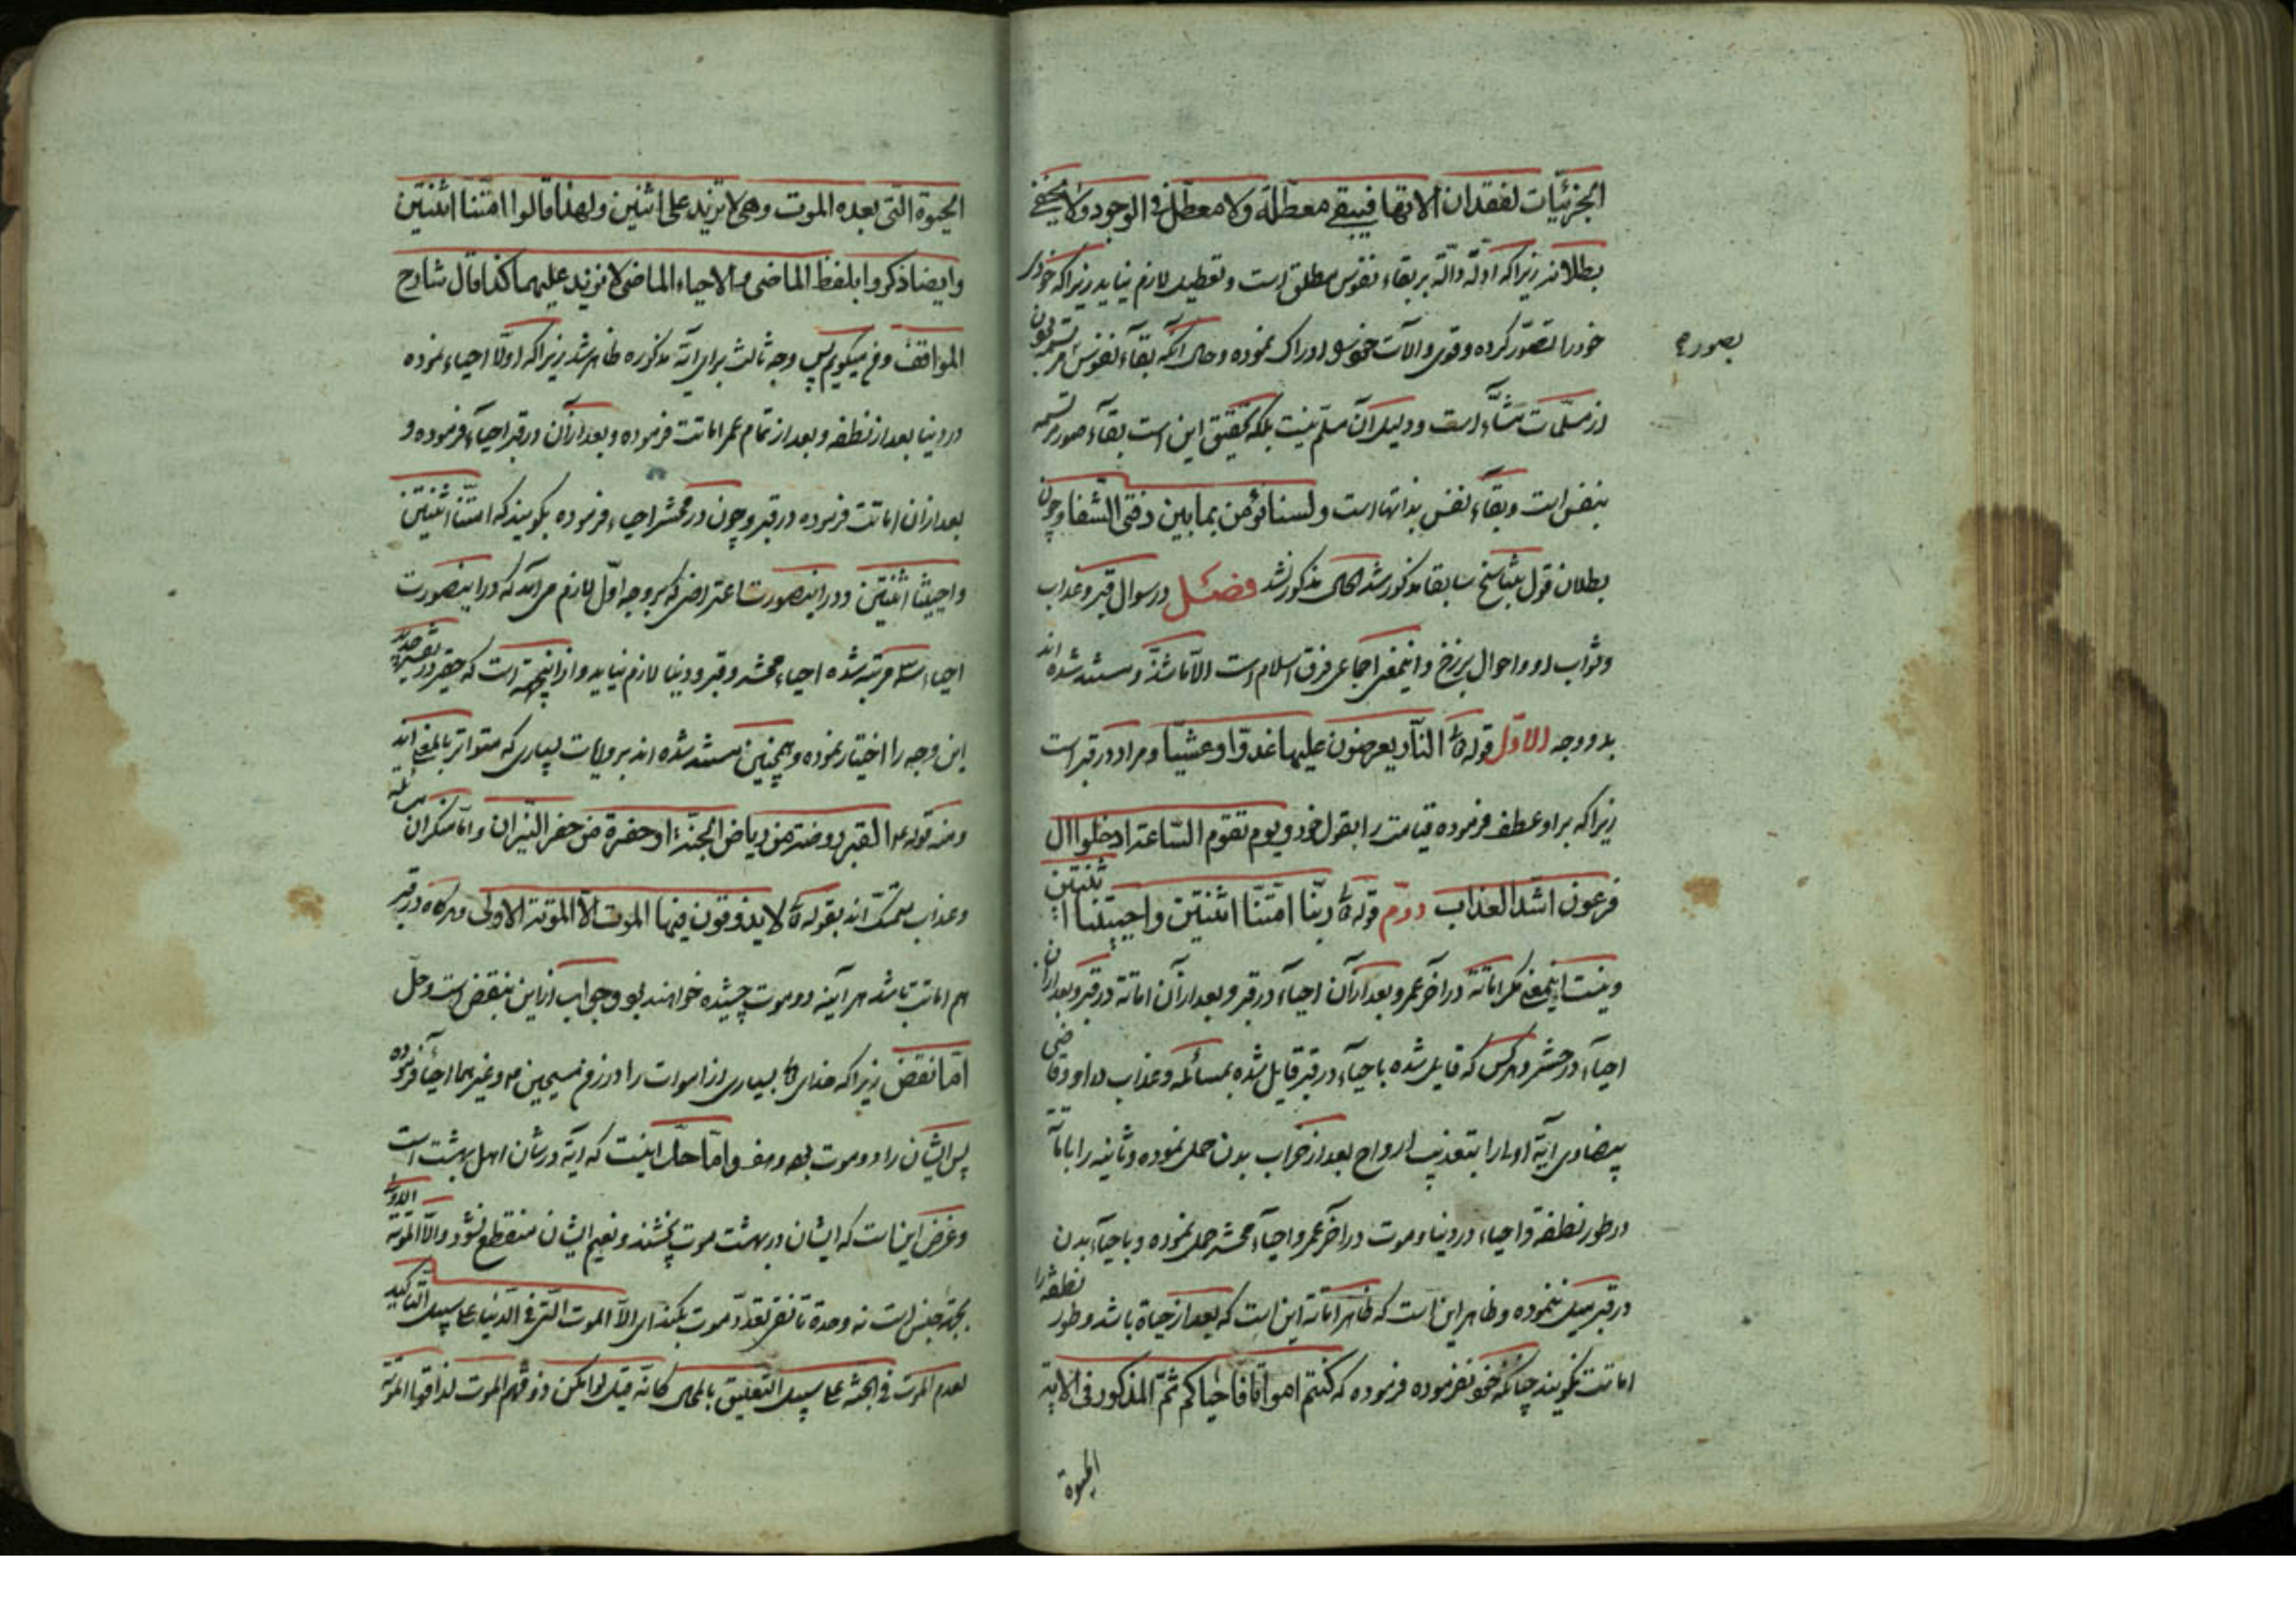 الجزئیّات لفقدان الاتها فیبقی معطلة ولا معطل فی الوجود ولا یخفی
بطلانه زیراکه ادلّه دالّه بر بقاء نفوس مطلق است و تعطیل لازم نیاید زیراکه خود
خود را تصوّر کرده و قوی و آلات خود را ادراک نموده و حال آنکه بقاء نفوس
بصوره
از مسلّمات مشّاء است و دلیل آن مسلّم نیست بلکه تحقیق این است بقاء صور
بنفس است و بقاء نفس بذاتها است ولسنا نؤمن بما بین دفتی الشفا و چون
بطلان قول بتناسخ سابقا مذکور شد الحال مذکور نشد فصل در سوال قبر و عذاب
و ثواب او و احوال برزخ و اینمعنی اجماعی فرق اسلام است الا ما شذّ و مستند شده اند
بدو وجه الاوّل قوله تع النار یعرضون علیها غدوّا و عشیّا و مراد در قبر است
زیراکه بر او عطف فرموده قیامت را بقول خود و یوم تقوم السّاعة ادخلوا ال
فرعون اشدّ العذاب دوّم قوله تع ربّنا امتّنا اثنتین و احییتنا اثنتین
و نیست اینمعنی مکر اماته در آخر عمر و بعد از آن احیاء در قبر و بعد از آن اماته در قبر و بعد از آن
احیاء در حشر و هر کس که قایل شده باحیاء در قبر قایل شده بمسائله و عذاب در او و قاضی
بیضاوی آیة اولی را بتعذیب ارواح بعد از خراب بدن حمل نموده و ثانیه را باماتة
در طور نطفه و احیاء در دنیا و موت در آخر عمر و احیاء محشر حمل نموده و باحیاء بدن
در قبر میل ننموده و ظاهر این است که ظاهر اماته این است که بعد از حیاة باشد و طور نطفه را
اماتت نکویند چنانکه خود نفرموده فرموده که کنتم امواتا فاحیاکم ثمّ المذکور فی الایة
الحیوة
الحیوة التی بعده الموت وهی لا تزید علی اثنین ولهذا قالوا امتّنا اثنتین
وایضا ذکروا بلفظ الماضی والاحیاء الماضی لا تزید علیهما کذا قال شارح
المواقف و من میکویم پس وجه ثالث برای آیة مذکوره ظاهر شد زیراکه اوّلا احیاء نموده
در دنیا بعد از نطفه و بعد از تمام عمر اماتت فرموده و بعد از آن در قبر احیاء فرموده و
بعد از آن اماتت فرموده در قبر و چون در محشر احیاء فرموده بکویند که امتّنا اثنتین
واحییتنا اثنتین و در اینصورت اعتراضی که بر وجه اوّل لازم می آمد که در اینصورت
احیاء سه مرتبه شده احیاء محشر و قبر و دنیا لازم نیاید و از اینجهة است که حقیر در
این وجه را اختیار نموده و همچنین مستند شده اند بروایات بسیاری که متواتر بالمعنی اند
ومنه قوله ع القبر روضة من ریاض الجنّة او حفرة من حفر النّیران و امّا منکران
و عذاب متمسّک اند بقوله تع لا یذوقون فیها الموت الاّ الموتة الاولی و هرکاه در قبر
هم اماتت باشد هر آینه دو موت چشیده خواهند بود و جواب از این بنقض است و حل
امّا نقض زیراکه خدای تع بسیاری از اموات را در زمن مسیح و غیرهما احیا فرموده
پس ایشان را دو موت بوده و امّا حلّ اینست که آیة در شان اهل بهشت است
و غرض این است که ایشان در بهشت موت نچشند و نعیم ایشان منقطع نشود و الّا الموتة الاولی
بجهة جنس است نه وحدة تا نفی تعدّد موت بکند ای الاّ الموت التی فی الدّنیا علی سبیل التاکید
لعدم الموت فی الجنة علی سبیل التعلیق بالمحال کانه قیل لو امکن ذوقهم الموت لذاقوا الموتة